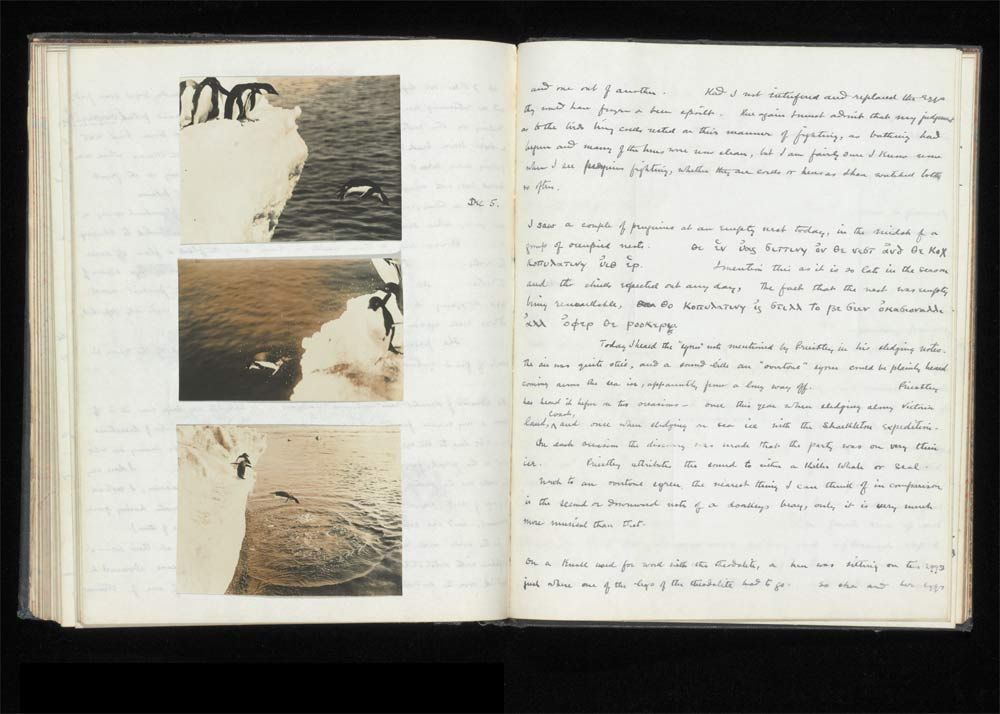 and one out of another. Had I not interfered and replaced the eggs
they would have frozen or been spoilt. Here again I must admit that my judgment
as to the birds being cocks rested on their manner of fighting, as bathing had
begun and many of the hens were now clean, but I am fairly sure I know now
when I see penguins fighting, whether they are cocks or hens as I have watched both
so often.
Dec 5.
I saw a couple of penguins at an empty nest today, in the midst of a
group of occupied nests. θε ἑν ὑας σιττινγ ὀν θε νεστ ἀνδ θε κοχ
κοπυλατινγ ὑιθ ἑρ. I mention this as it is so late in the season
and the chicks expected out any day, The fact that the nest was empty
being remarkable, θο κοπυλατινγ ἰς στιλλ το βε σεεν ὀκασιοναλλε
ἀλλ ὀφερ θε ροοκερε
Today I heard the "syren" note mentioned by Priestley in his sledging notes.
The air was quite still, and a sound like an "overtone" syren could be plainly heard
coming across the sea ice, apparently from a long way off. Priestley
has heard it before on two occasions - once this year when sledging along Victoria
land, coast, and once when sledging on sea ice with the Shackleton expedition.
On each occasion the discovery was made that the party was on very thin
ice. Priestley attributes the sound to either a Killer Whale or Seal.
Next to an overtone syren, the nearest thing I can think of in comparison
is the second or downward note of a donkeys bray, only it is very much
more musical than that.
On a Knoll used for work with the theodolite, a hen was sitting on two eggs
just where one of the legs of the theodolite had to go. So she and her eggs